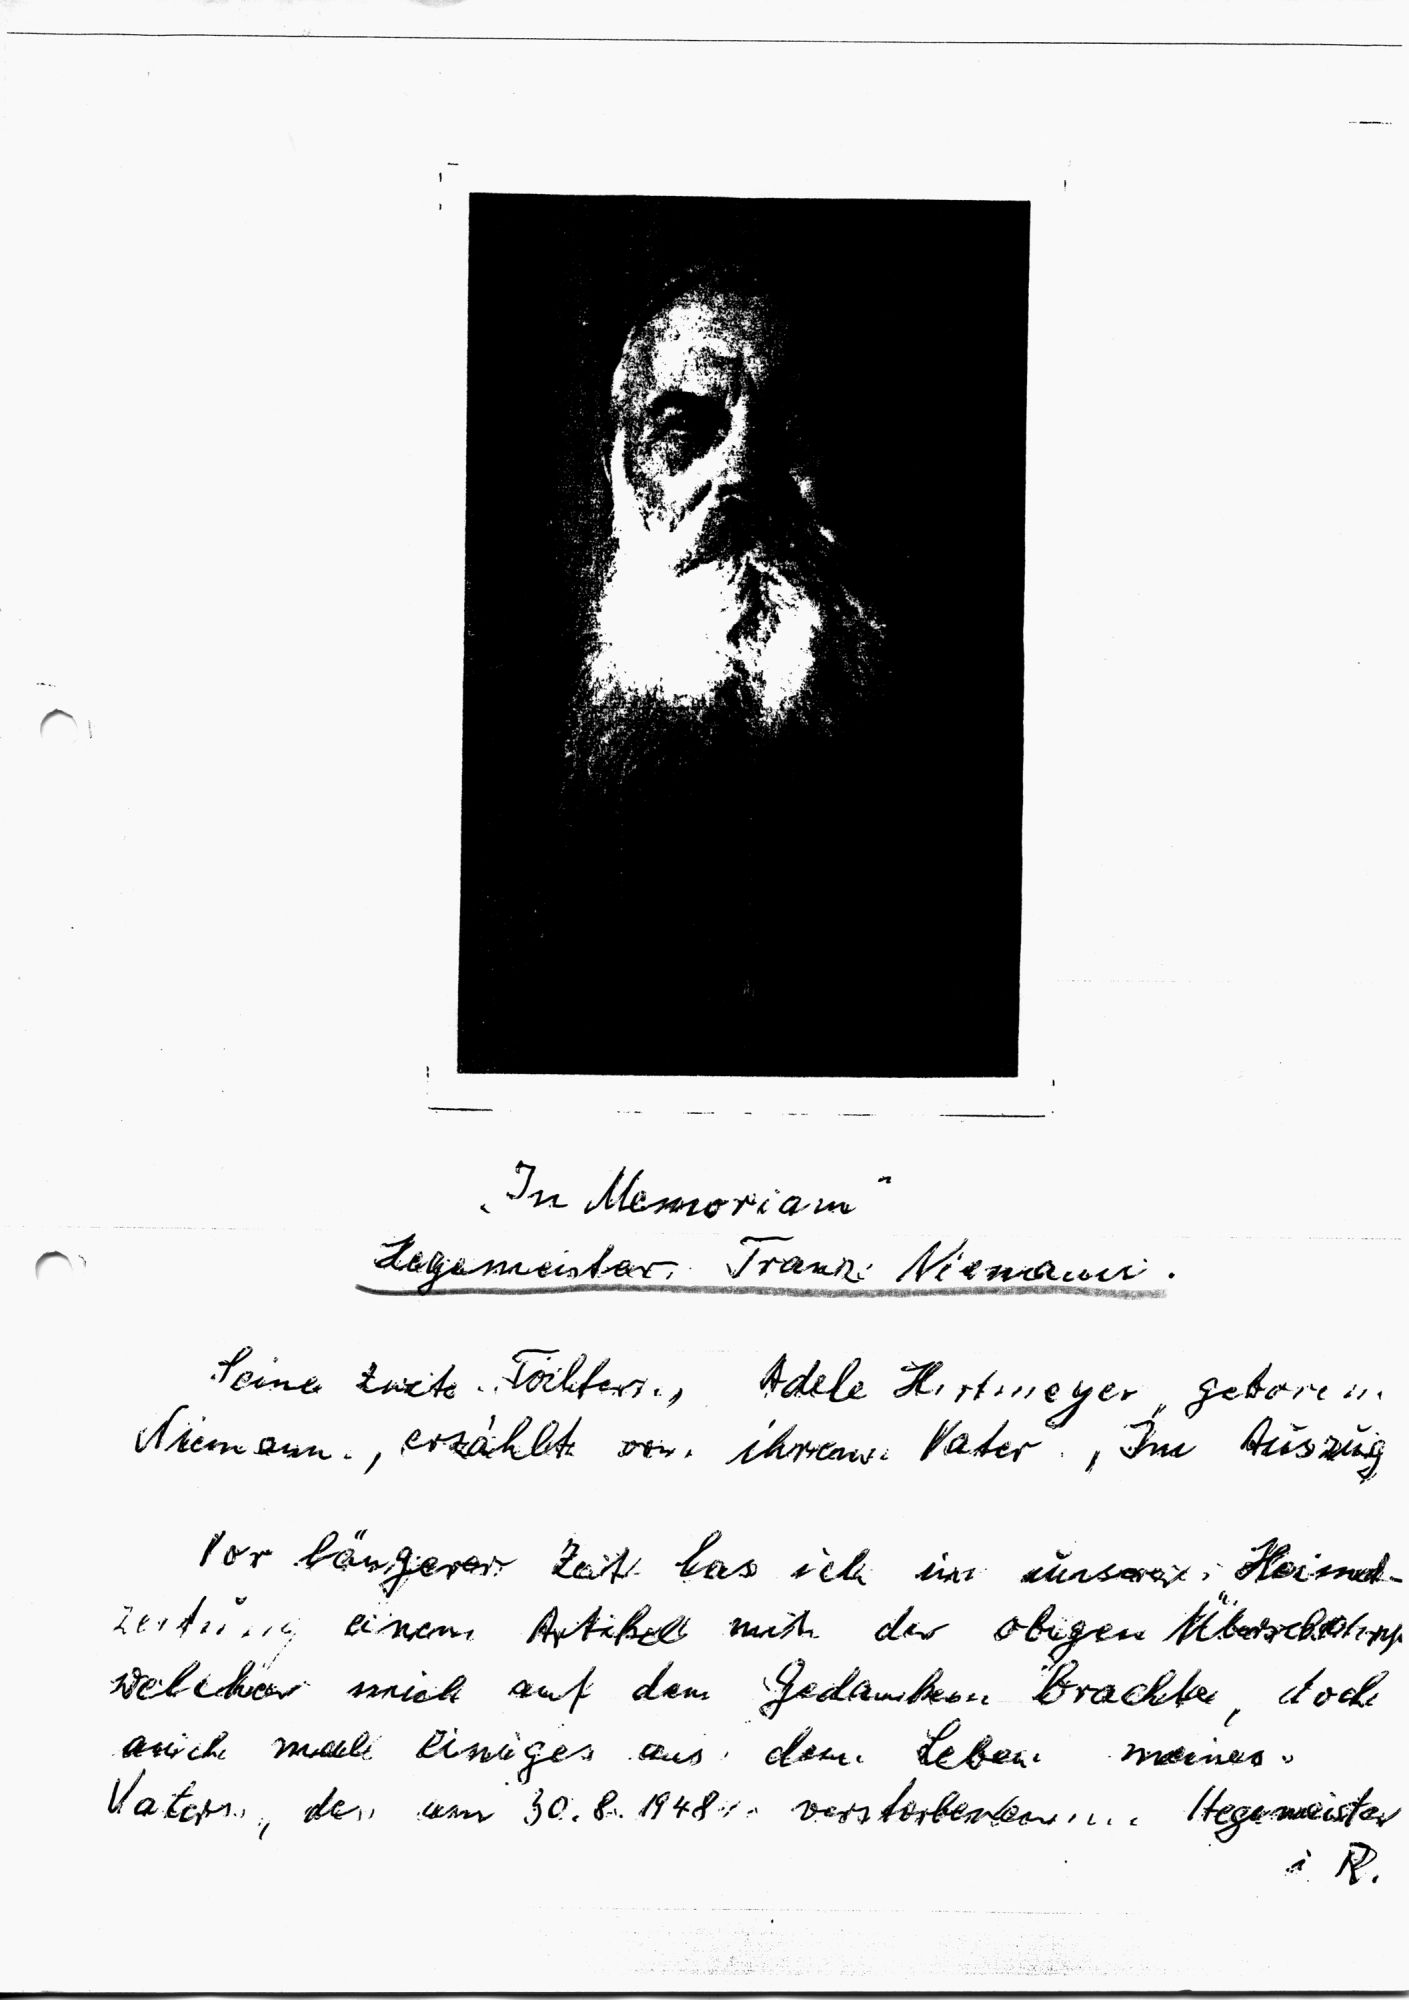 „In Memoriam"
Hegemeister Franz Niemann.
Seine zweite Tochter, Adele Hirtmeyer, geboren
Niemann, erzählt von ihrem Vater, Im Auszug
Vor längerer Zeit las ich in unserer Heimat-
zeitung einen Artikel mit der obigen Überschrift
welcher mich auf den Gedanken brachte, doch
auch mal einiges aus dem Leben meines
Vaters, des am 30.8.1948 verstorbenen Hegemeister
i R.